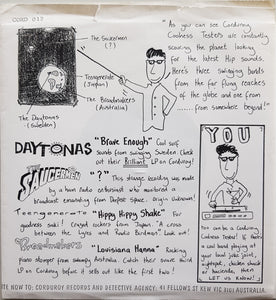 CORD 017
The Saucermen
(?)
Teengenerate
(Japan)
The Breadmakers
(Australia)
The Daytonas
(Sweden)
"As you can see Corduroy
Coolness Testers are constantly
scouring the planet looking
for the latest Hip sounds.
Here's three swinging bands
from the far flung reaches
of the globe and one from
......from somewhere beyond!"
DAYTONAS "Brave Enough" Cool surf
sounds from swinging Sweden. Check
out their Brilliant LP on Corduroy!
THE SAUCERMEN "?" This strange recording was made
by a ham radio enthusiast who monitored a
broadcast emanating from Deepest space. Origin unknown!
Teengenerate "Hippy Hippy Shake" For
goodness sake! Crazed rockers from Japan. "A cross
between the Lyles and Radio Birdman." Look out!
Breadmakers "Louisiana Hanna" Rocking
piano stomper from swampy Australia. Catch their second third
LP on Corduroy before it sells out like the first two!
YOU
You can be a Corduroy
Coolness Tester! If there's
a cool band playing at
your local pub, joint,
nightspot, chicken shack
or backyard, then
LET US KNOW!
WRITE NOW TO: CORDUROY RECORDS AND DETECTIVE AGENCY: 41 FELLOWS ST KEW VIC 3101 AUSTRALIA.